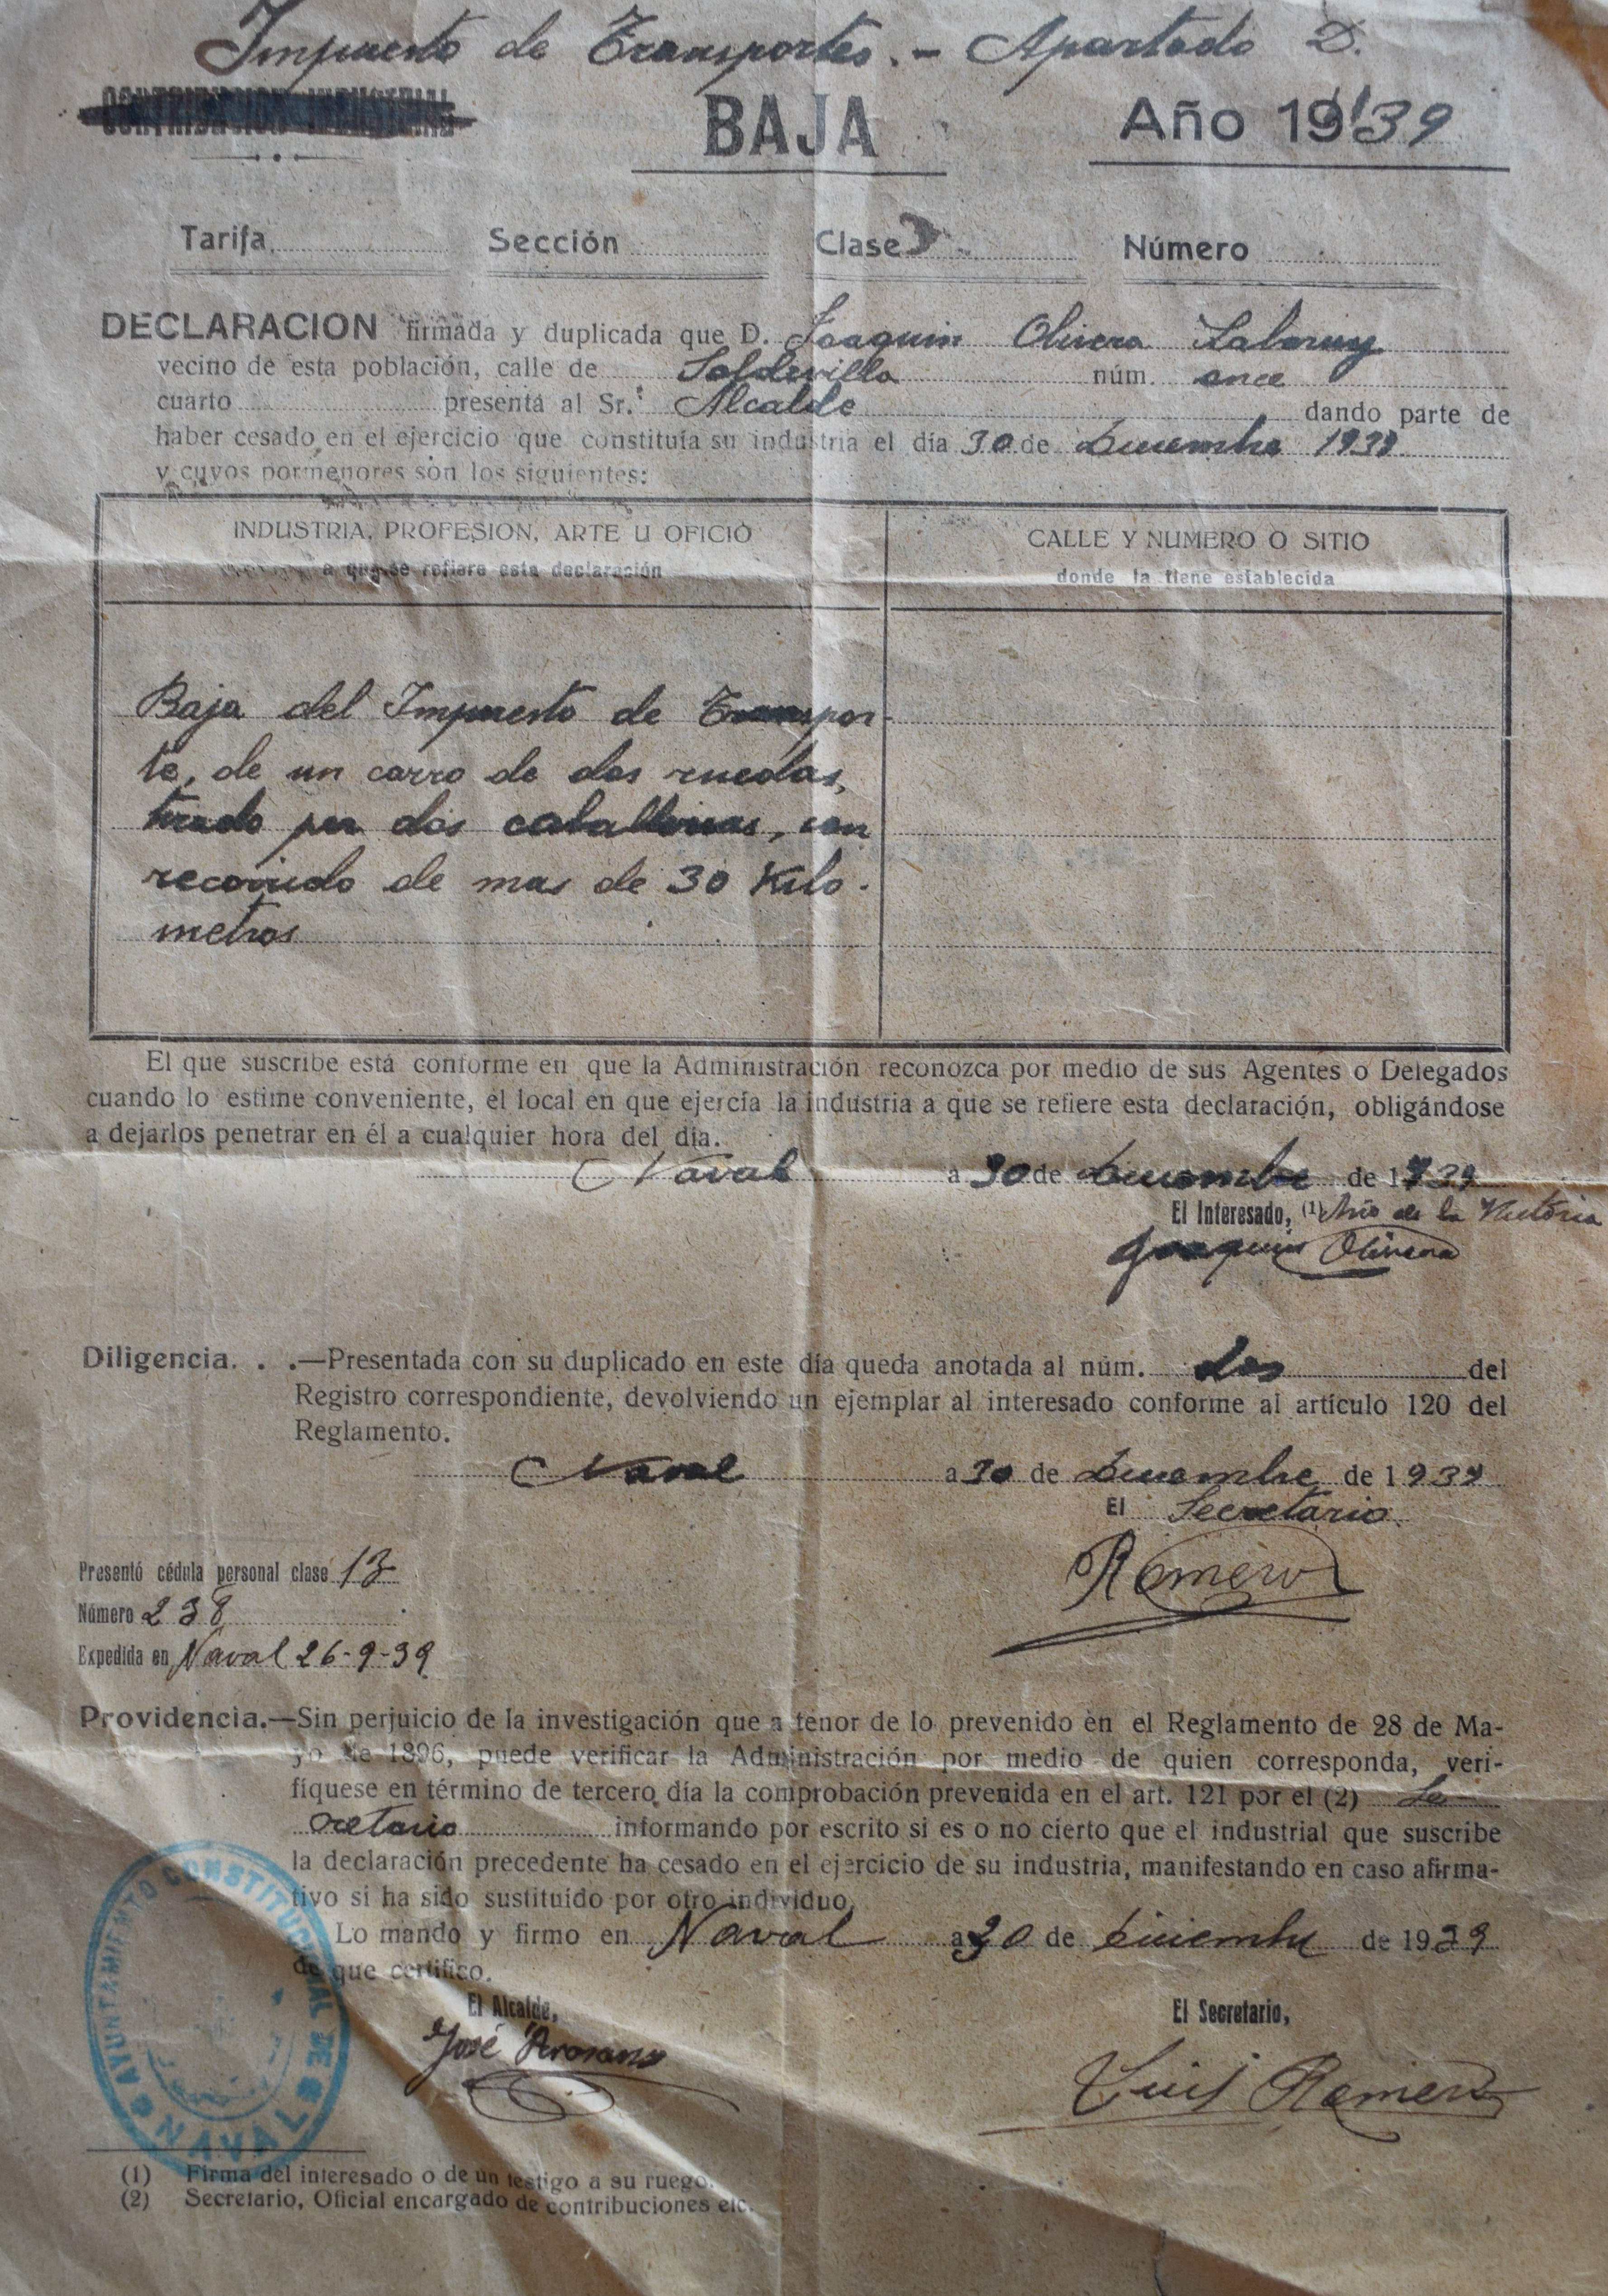 Impuesto de Transportes.- Apartado D.
CONTRIBUCION INDUSTRIAL
BAJA
Año 1939
Tarifa Sección Clase Número
DECLARACION firmada y duplicada que D. Joaquin Olivera
vecino de esta población, calle de Soldevilla núm. once
cuarto presenta al Sr. Alcalde dando parte de
haber cesado en el ejercicio que constituía su industria el día 30 de Diciembre 1939
y cuyos pormenores son los siguientes:
INDUSTRIA, PROFESION, ARTE U OFICIO
a que se refiere esta declaración
CALLE Y NUMERO O SITIO
donde la tiene establecida
Baja del Impuesto de Transpor-
te, de un carro de dos ruedas,
tirado por dos caballerias, con
recorrido de mas de 30 Kilo-
metros
El que suscribe está conforme en que la Administración reconozca por medio de sus Agentes o Delegados
cuando lo estime conveniente, el local en que ejercía la industria a que se refiere esta declaración, obligándose
a dejarlos penetrar en él a cualquier hora del día.
Naval a 30 de Diciembre de 1939
El Interesado, (1) Año de la Victoria
Joaquin Olivera
Diligencia. . .—Presentada con su duplicado en este día queda anotada al núm. dos del
Registro correspondiente, devolviendo un ejemplar al interesado conforme al artículo 120 del
Reglamento.
Naval a 30 de Diciembre de 1939
El Secretario.
Romero
Presentó cédula personal clase 13
Número 238
Expedida en Naval 26-9-39
Providencia.—Sin perjuicio de la investigación que a tenor de lo prevenido en el Reglamento de 28 de Ma-
yo de 1896, puede verificar la Administración por medio de quien corresponda, veri-
fíquese en término de tercero día la comprobación prevenida en el art. 121 por el (2) Se-
cretario informando por escrito si es o no cierto que el industrial que suscribe
la declaración precedente ha cesado en el ejercicio de su industria, manifestando en caso afirma-
tivo si ha sido sustituído por otro individuo.
Lo mando y firmo en Naval a 30 de Diciembre de 1939
de que certifico.
El Alcalde,
José
El Secretario,
Luis Romero
AYUNTAMIENTO CONSTITUCIONAL DE NAVAL
(1) Firma del interesado o de un testigo a su ruego.
(2) Secretario, Oficial encargado de contribuciones etc.